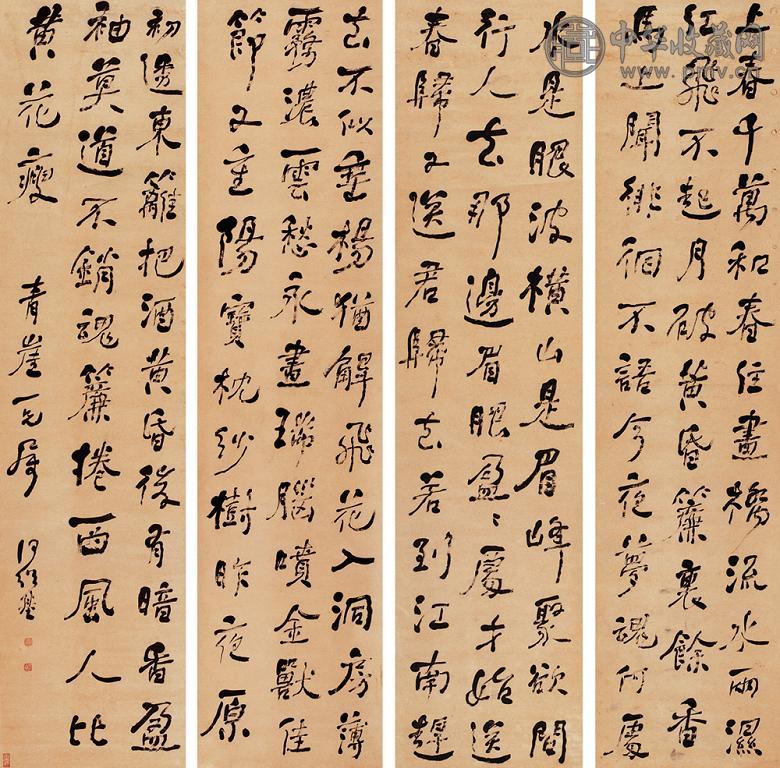 水是眼波橫山是眉峰聚欲問
行人去那邊眉眼盈盈處才始送
春歸又送君歸去若到江南趕
上春千萬和春住畫橋流水雨濕
紅飛不起月破黃昏簾裏餘香
馬上聞徘徊不語今夜夢魂何處
去不似垂楊猶解飛花入洞房薄
霧濃雲愁永晝瑞腦噴金獸佳
節又重陽寶枕紗樹昨夜原
初透東籬把酒黃昏後有暗香盈
袖莫道不銷魂簾捲西風人比
黃花瘦
青崖一兄屬 何紹基
中华收藏网